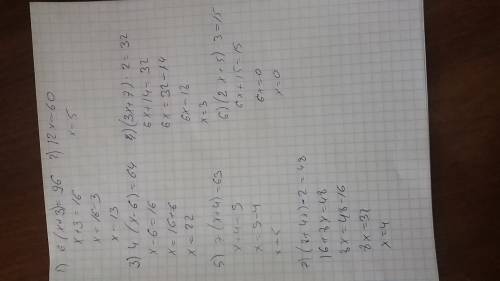 1) 6(x+3)=96
x+3=16
x=16-3
x=13
2) 12x=60
x=5
3) 4(x-6)=64
x-6=16
x=16+6
x=22
4) (3x+7)·2=32
6x+14=32
6x=32-14
6x=18
x=3
5) 7(x+4)=63
x+4=9
x=9-4
x=5
6) (2x+5)3=15
6x+15=15
6x=0
x=0
7) (8+4x)·2=48
16+8x=48
8x=48-16
8x=32
x=4